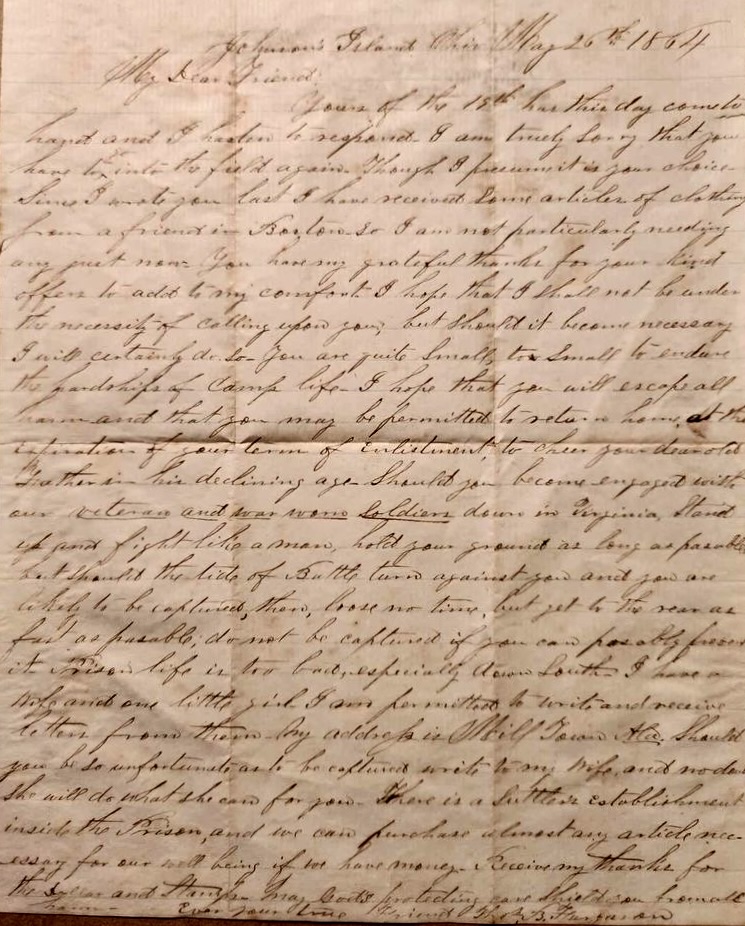 Johnson's Island Ohio May 26th 1864
My Dear Friend
Yours of the 18th has this day come to
hand and I hasten to respond. I am truely sorry that you
have to into the field again. Though I presume it is your choice.
Since I wrote you last I have received some articles of clothing
from a friend in Boston so I am not particularly needing
any just now. You have my grateful thanks for your kind
offers to add to my comfort. I hope that I shall not be under
the necessity of calling upon you, but should it become necessary
I will certainly do so. You are quite small, too small to endure
the hardships of Camp life. I hope that you will escape all
harm and that you may be permitted to return home, at the
expiration of your term of Enlistment, to cheer your dear old
Father in his declining age. Should you become engaged with
our veteran and war worn soldiers down in Virginia, Stand
up and fight like a man, hold your ground as long as posable
but should the tide of Battle turn against you and you are
likely to be captured, then, loose no time, but get to the rear as
fast as posable; do not be captured if you can posably
it. Prison life is too bad, especially down South. I have a
Wife and one little girl I am permitted to write and receive
letters from them. My address is Mill Town Ala. Should
you be so unfortunate as to be captured write to my Wife, and no
she will do what she can for you. There is a Sutler's establishment
inside the Prison, and we can purchase almost any article nec-
essary for our well being if we have money. Receive my thanks for
the Dollar and Stamps. May God's protecting care shield you from all
harm. Ever your true Friend B. Ferguson